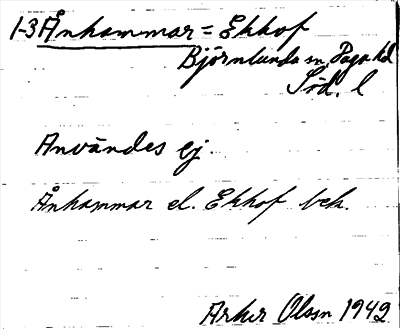 1-3 Ånhammar = Ekhof
Björnlunda sn, Daga hd
Söd. l
Användes ej.
Ånhammar el. Ekhof bek.
Olsson 1942